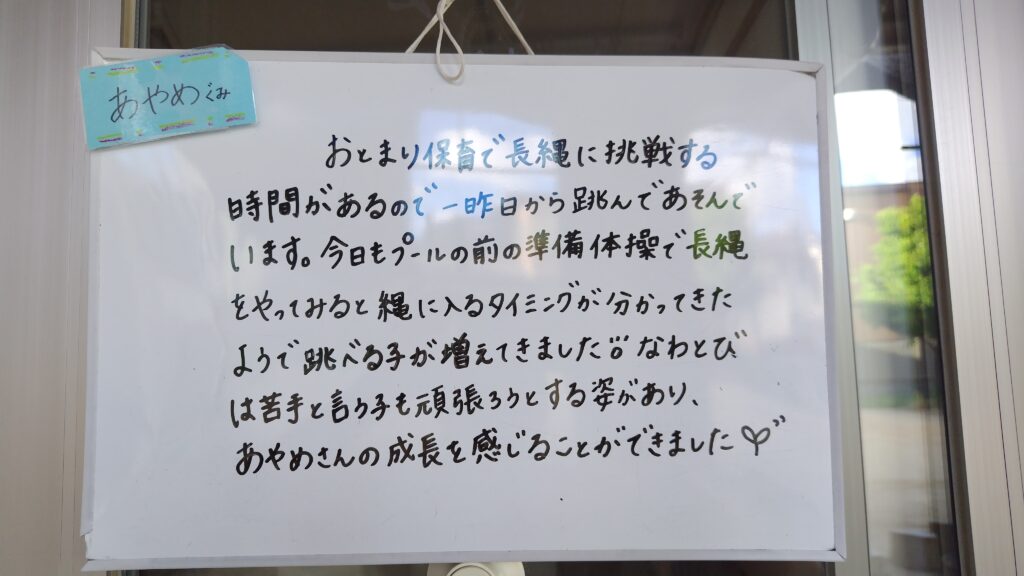 あやめぐみ
おとまり保育で長縄に挑戦する
時間があるので一昨日から跳んであそんで
います。今日もプールの前の準備体操で長縄
をやってみると縄に入るタイミングが分かってきた
ようで跳べる子が増えてきました なわとび
は苦手と言う子も頑張ろうとする姿があり、
あやめさんの成長を感じることができました